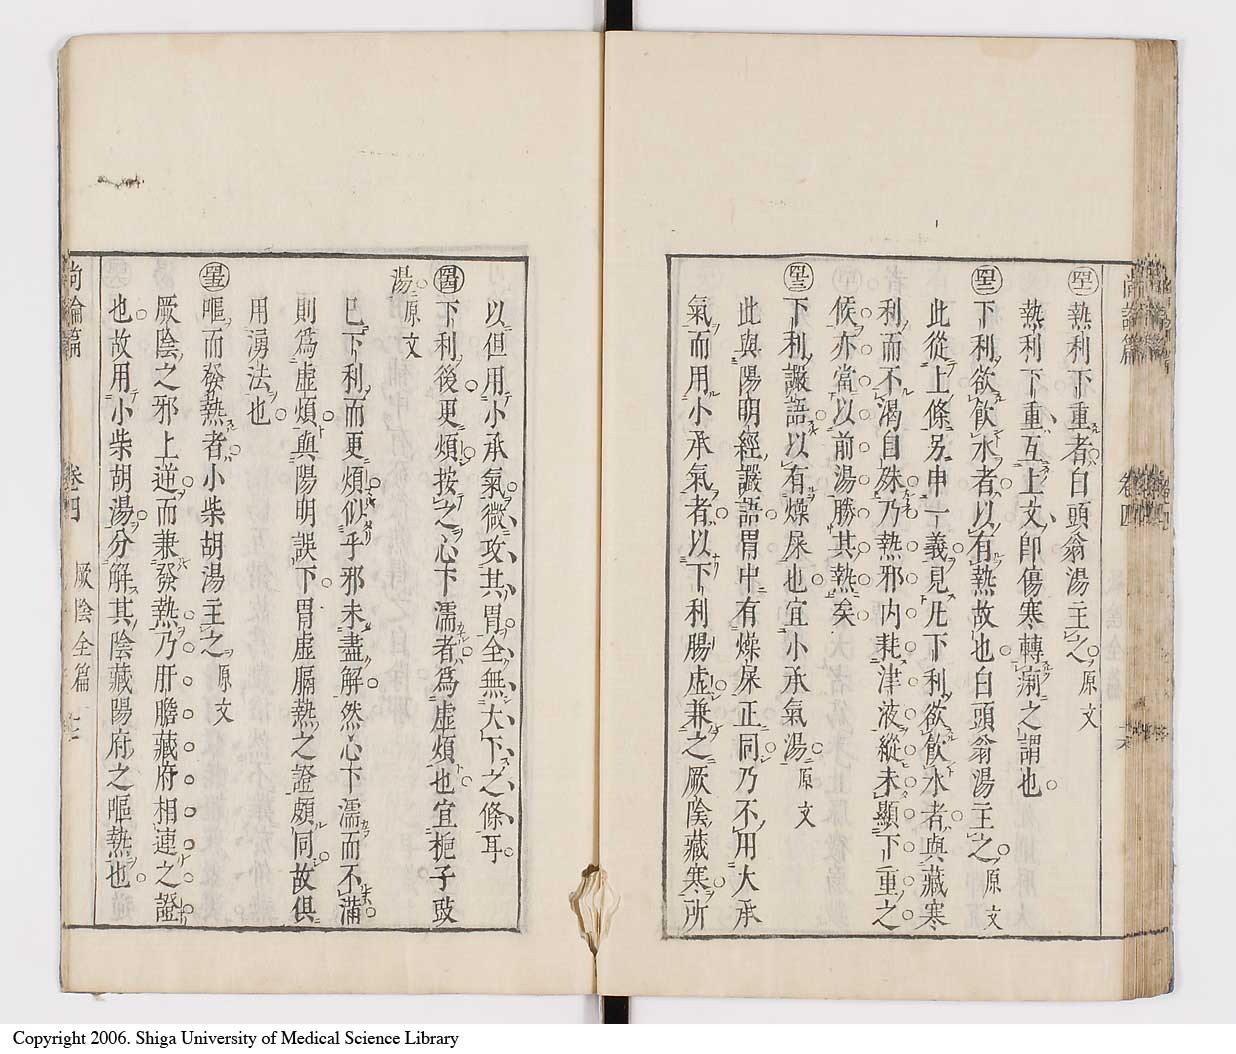 熱利下重者白頭翁湯主之原文
熱利下重互上文即傷寒轉痢之謂也
下利欲飲水者以有熱故也白頭翁湯主之原文
此從上條另申一義見凡下利欲飲水者與藏寒
利而不渴自殊乃熱邪內耗津液縱未顯下重之
候亦當以前湯勝其熱矣
下利讝語以有燥屎也宜小承氣湯原文
此與陽明經讝語胃中有燥屎正同乃不用大承
氣而用小承氣者以下利腸虛兼之厥陰藏寒所
以但用小承氣微攻其胃全無大下之條耳
下利後更煩按之心下濡者為虛煩也宜梔子豉
湯原文
已下利而更煩似乎邪未盡解然心下濡而不滿
則為虛煩與陽明誤下胃虛膈熱之證頗同故俱
用湧法也
嘔而發熱者小柴胡湯主之原文
厥陰之邪上逆而兼發熱乃肝膽藏府相連之證
也故用小柴胡湯分解其陰藏陽府之嘔熱也
尚論篇 卷四 厥陰全篇
Copyright 2006. Shiga University of Medical Science Library